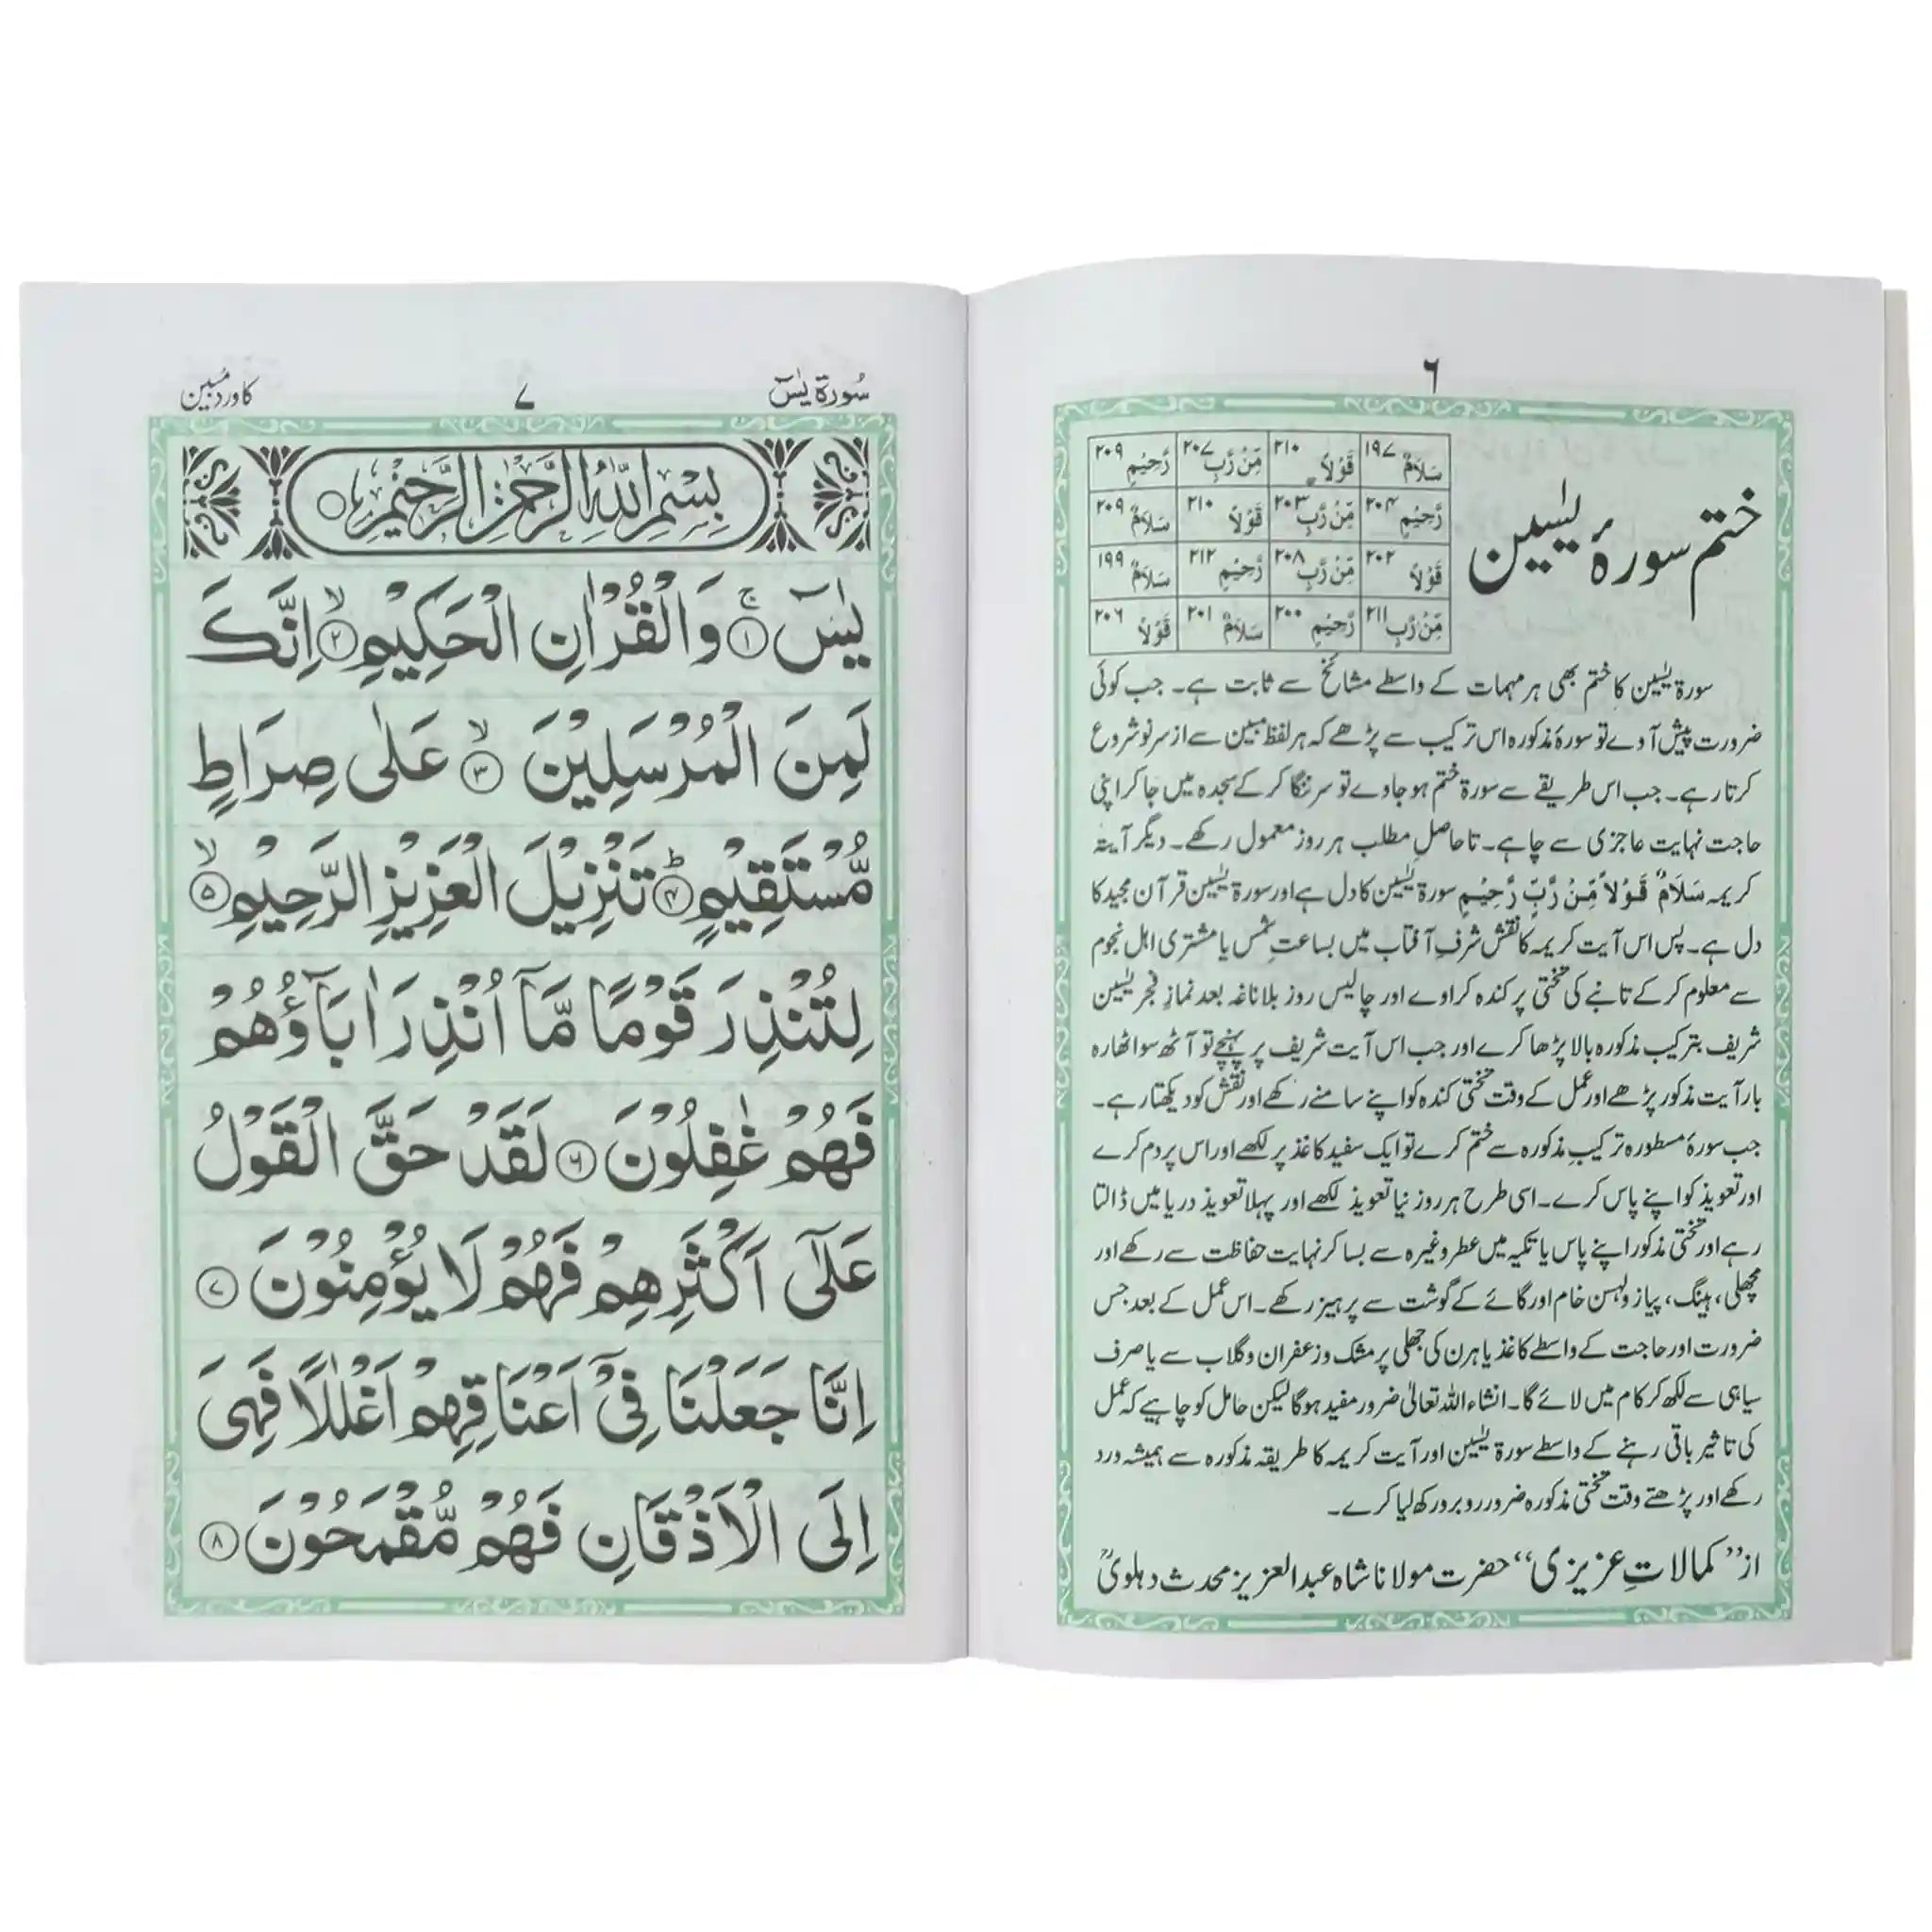 ۶
ختم سورۂ یٰسین
۱۹۷ سَلَامٌ ۲۱۰ قَوْلًا ۲۰۷ مِّنْ رَّبٍّ ۲۰۹ رَّحِیْمٍ
۲۰۴ رَّحِیْمٍ ۲۰۳ مِّنْ رَّبٍّ ۲۱۰ قَوْلًا ۲۰۹ سَلَامٌ
۲۰۲ قَوْلًا ۲۰۸ مِّنْ رَّبٍّ ۲۱۲ رَّحِیْمٍ ۱۹۹ سَلَامٌ
۲۱۱ مِّنْ رَّبٍّ ۲۰۰ رَّحِیْمٍ ۲۰۱ سَلَامٌ ۲۰۶ قَوْلًا
سورۃ یٰسین کا ختم بھی ہر مہمات کے واسطے مشائخ سے ثابت ہے۔ جب کوئی
ضرورت پیش آوے تو سورۂ مذکورہ اس ترکیب سے پڑھے کہ ہر لفظ مبین سے از سر نو شروع
کرتا رہے۔ جب اس طریقے سے سورۃ ختم ہو جاوے تو سر ننگا کر کے سجدہ میں جا کر اپنی
حاجت نہایت عاجزی سے چاہے۔ تا حاصلِ مطلب ہر روز معمول رکھے۔ دیگر آیتہ
کریمہ سَلَامٌ قَوْلًا مِّنْ رَّبٍّ رَّحِیْمٍ سورۃ یٰسین کا دل ہے اور سورۃ یٰسین قرآن مجید کا
دل ہے۔ پس اس آیت کریمہ کا نقش شرفِ آفتاب میں بساعتِ شمس یا مشتری اہل نجوم
سے معلوم کر کے تانبے کی تختی پر کندہ کراوے اور چالیس روز بلاناغہ بعد نمازِ فجر یٰسین
شریف بترکیب مذکورہ بالا پڑھا کرے اور جب اس آیت شریف پر پہنچے تو آٹھ سو اٹھارہ
بار آیت مذکور پڑھے اور عمل کے وقت تختی کندہ کو اپنے سامنے رکھے اور نقش کو دیکھتا رہے۔
جب سورۂ مسطورہ ترکیبِ مذکورہ سے ختم کرے تو ایک سفید کاغذ پر لکھے اور اس پر دم کرے
اور تعویذ کو اپنے پاس کرے۔ اسی طرح ہر روز نیا تعویذ لکھے اور پہلا تعویذ دریا میں ڈالتا
رہے اور تختی مذکور اپنے پاس یا تکیہ میں عطر وغیرہ سے بسا کر نہایت حفاظت سے رکھے اور
مچھلی، ہینگ، پیاز و لہسن خام اور گائے کے گوشت سے پرہیز رکھے۔ اس عمل کے بعد جس
ضرورت اور حاجت کے واسطے کاغذ یا ہرن کی جھلی پر مشک و زعفران و گلاب سے یا صرف
سیاہی سے لکھ کر کام میں لائے گا۔ انشاء اللہ تعالیٰ ضرور مفید ہو گا لیکن حامل کو چاہیے کہ عمل
کی تاثیر باقی رہنے کے واسطے سورۃ یٰسین اور آیت کریمہ کا طریقہ مذکورہ سے ہمیشہ ورد
رکھے اور پڑھتے وقت تختی مذکورہ ضرور روبرو رکھ لیا کرے۔
از ”کمالاتِ عزیزی“ حضرت مولانا شاہ عبدالعزیز محدث دہلویؒ
سُورۃ یٰسٓ ۷ کا ورد مُبین
بِسْمِ اللّٰهِ الرَّحْمٰنِ الرَّحِیْمِ ○
یٰسٓ ۚ﴿۱﴾ وَالْقُرْاٰنِ الْحَكِیْمِ ۙ﴿۲﴾ اِنَّكَ
لَمِنَ الْمُرْسَلِیْنَ ۙ﴿۳﴾ عَلٰی صِرَاطٍ
مُّسْتَقِیْمٍ ؕ﴿۴﴾ تَنْزِیْلَ الْعَزِیْزِ الرَّحِیْمِ ۙ﴿۵﴾
لِتُنْذِرَ قَوْمًا مَّاۤ اُنْذِرَ اٰبَآؤُهُمْ
فَهُمْ غٰفِلُوْنَ ﴿۶﴾ لَقَدْ حَقَّ الْقَوْلُ
عَلٰۤی اَكْثَرِهِمْ فَهُمْ لَا یُؤْمِنُوْنَ ﴿۷﴾
اِنَّا جَعَلْنَا فِیْۤ اَعْنَاقِهِمْ اَغْلٰلًا فَهِیَ
اِلَی الْاَذْقَانِ فَهُمْ مُّقْمَحُوْنَ ﴿۸﴾